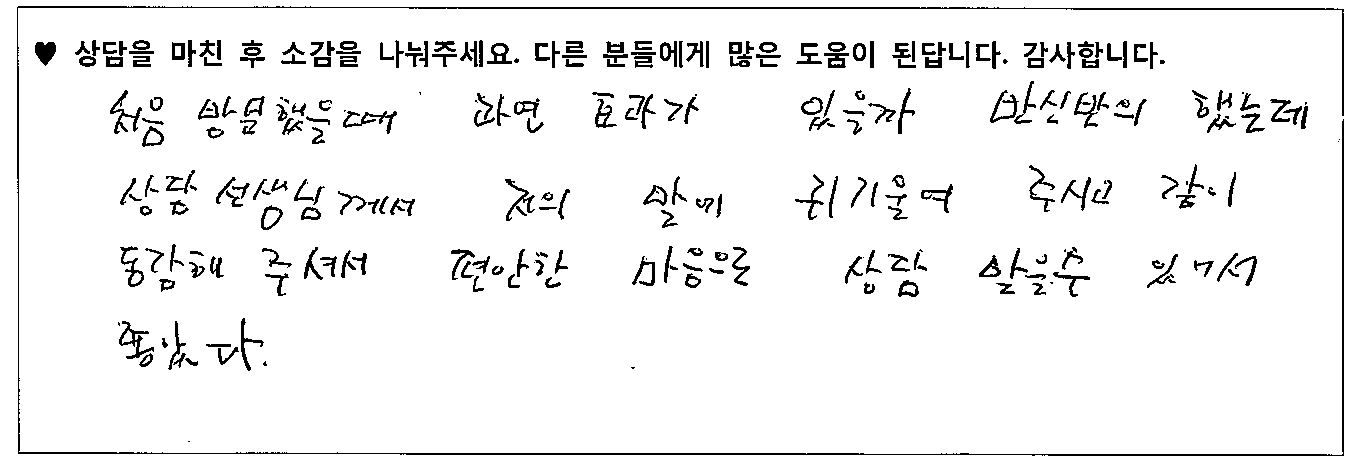 ♥ 상담을 마친 후 소감을 나눠주세요. 다른 분들에게 많은 도움이 된답니다. 감사합니다.
처음 방문했을때 과연 효과가 있을까 반신반의 했는데
상담 선생님께서 저의 말에 귀기울여 주시고 같이
동감해 주셔서 편안한 마음으로 상담 받을수 있어서
좋았다.